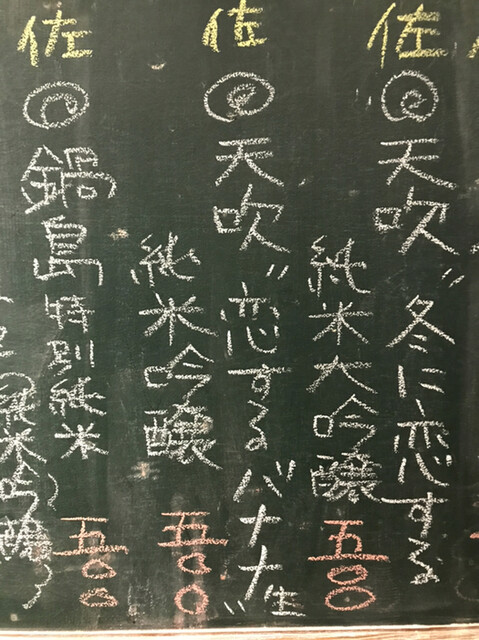 佐
天吹〃冬に恋する
純米大吟醸
五〇〇
佐
天吹〃恋するバナナ〃生
純米吟醸
五〇〇
佐
鍋島特別純米
五〇〇
(純米吟醸)